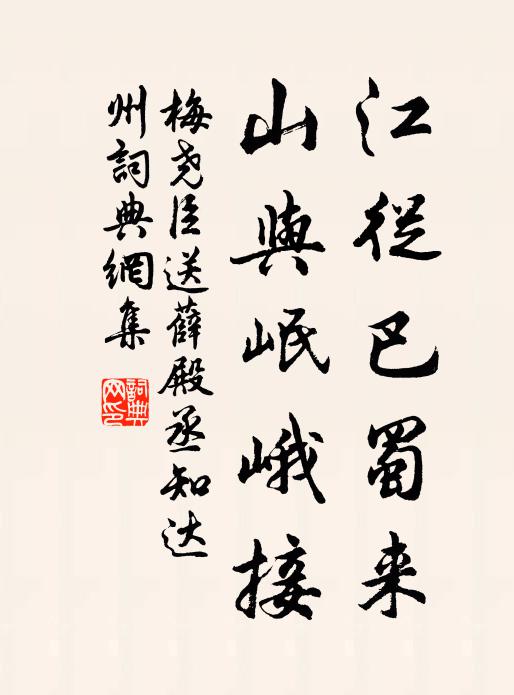 江從巴蜀来
山與岷峨接
梅尧臣送薛殿丞知达
州詞典網集
詞典
网印